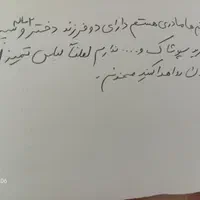 مادری هستم دارای دو فرزند دختر و
پوشاک و... ندارم لطفاً لباس تمیز
اهدا کنید ممنونم.